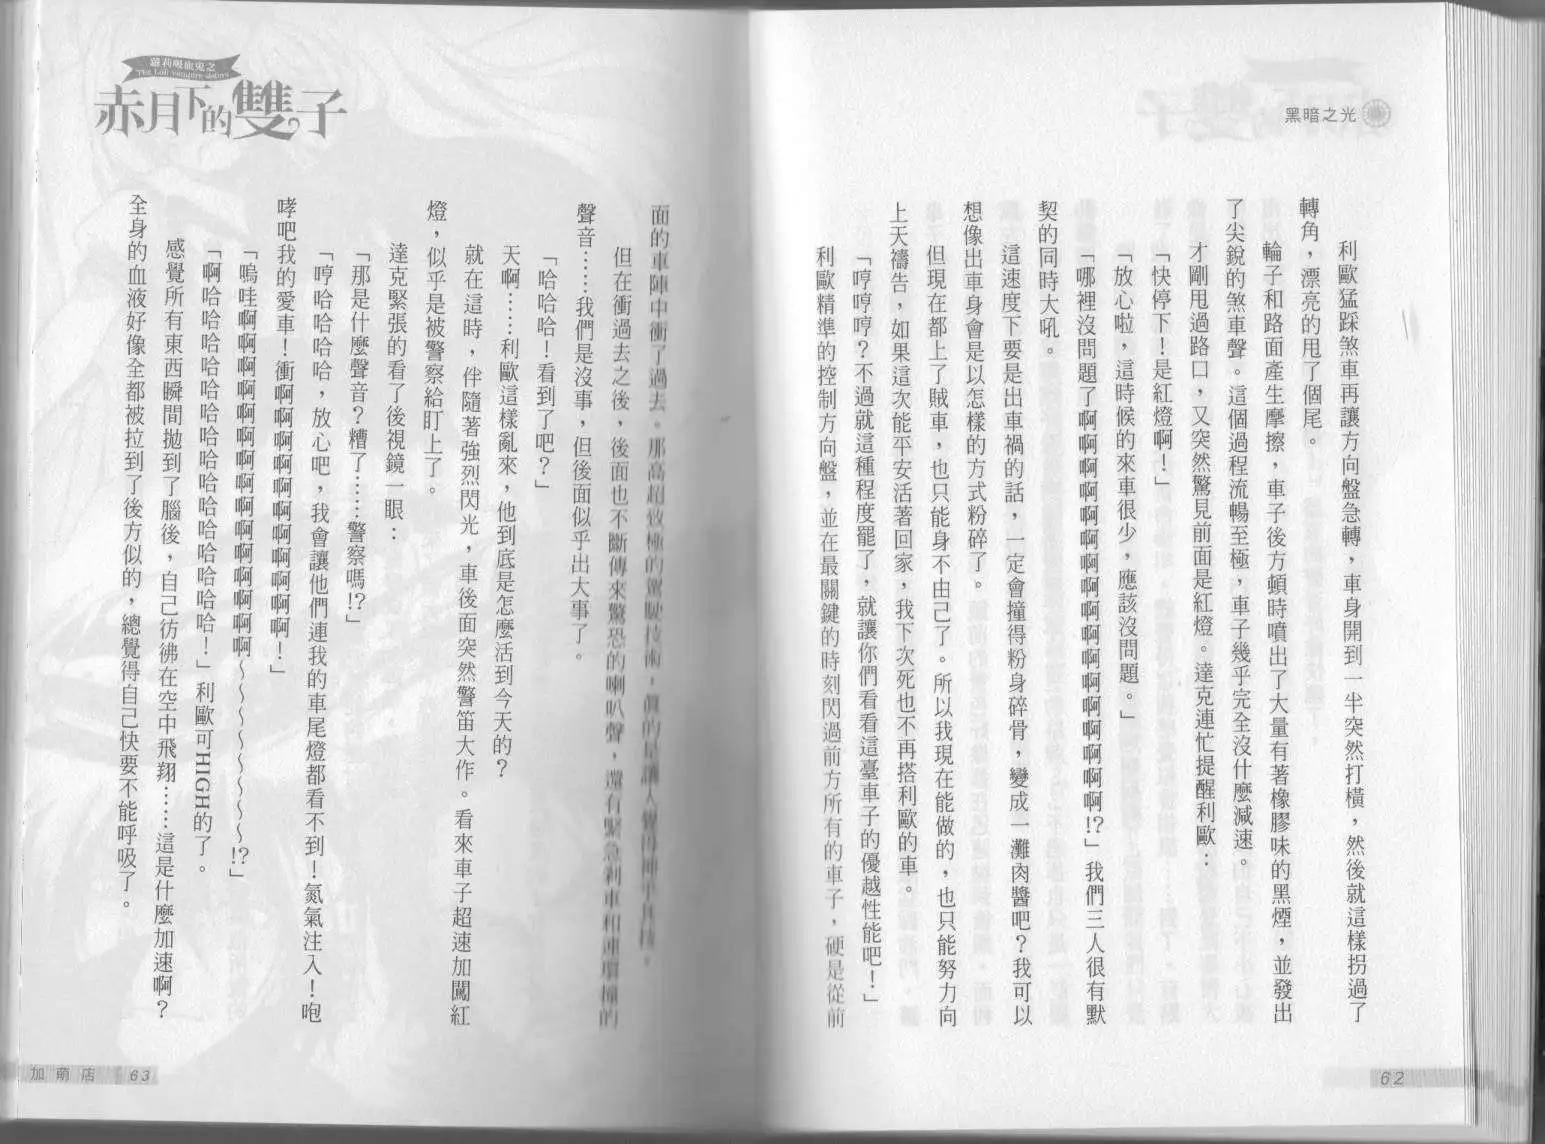 黑暗之光
利歐猛踩煞車再讓方向盤急轉，車身開到一半突然打橫，然後就這樣拐過了
轉角，漂亮的甩了個尾。
輪子和路面產生摩擦，車子後方頓時噴出了大量有著橡膠味的黑煙，並發出
了尖銳的煞車聲。這個過程流暢至極，車子幾乎完全沒什麼減速。
才剛甩過路口，又突然驚見前面是紅燈。達克連忙提醒利歐：
「快停下！是紅燈啊！」
「放心啦，這時候的來車很少，應該沒問題。」
「哪裡沒問題了啊啊啊啊啊啊啊啊啊啊啊啊啊啊啊啊啊!?」我們三人很有默
契的同時大吼。
這速度下要是出車禍的話，一定會撞得粉身碎骨，變成一灘肉醬吧？我可以
想像出車身會是以怎樣的方式粉碎了。
但現在都上了賊車，也只能身不由己了。所以我現在能做的，也只能努力向
上天禱告，如果這次能平安活著回家，我下次死也不再搭利歐的車。
「哼哼哼？不過就這種程度罷了，就讓你們看看這臺車子的優越性能吧！」
利歐精準的控制方向盤，並在最關鍵的時刻閃過前方所有的車子，硬是從前
62
蘿莉吸血鬼之
The Loli vampire sisters
赤月下的雙子
面的車陣中衝了過去。那高超致極的駕駛技術，真的是讓人覺得神乎其技。
但在衝過去之後，後面也不斷傳來驚恐的喇叭聲，還有緊急剎車和連環撞的
聲音……我們是沒事，但後面似乎出大事了。
「哈哈哈！看到了吧？」
天啊……利歐這樣亂來，他到底是怎麼活到今天的？
就在這時，伴隨著強烈閃光，車後面突然警笛大作。看來車子超速加闖紅
燈，似乎是被警察給盯上了。
達克緊張的看了後視鏡一眼：
「那是什麼聲音？糟了……警察嗎!?」
「哼哈哈哈哈，放心吧，我會讓他們連我的車尾燈都看不到！氮氣注入！咆
哮吧我的愛車！衝啊啊啊啊啊啊啊啊啊啊啊！」
「嗚哇啊啊啊啊啊啊啊啊啊啊啊啊啊啊啊～～～～～～～～!?」
「啊哈哈哈哈哈哈哈哈哈哈哈哈哈哈哈哈！」利歐可HIGH的了。
感覺所有東西瞬間拋到了腦後，自己彷彿在空中飛翔……這是什麼加速啊？
全身的血液好像全都被拉到了後方似的，總覺得自己快要不能呼吸了。
加萌店 63